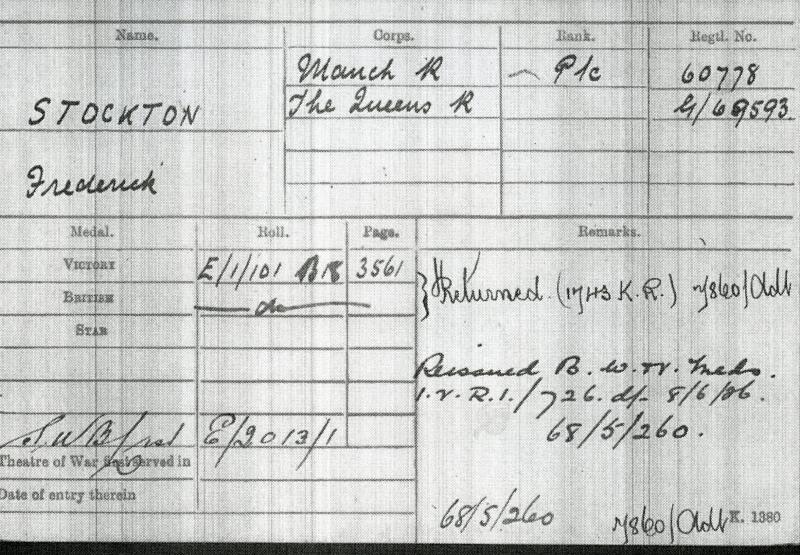 Name. Corps. Rank. Regtl. No.
STOCKTON
Frederick
Manch R Pte 60778
The Queens R G/69593
Medal. Roll. Page. Remarks.
VICTORY E/1/101 B18 3561
BRITISH — do —
STAR
Returned. (1743 K.R.) 7/860/Oldt
Reissued B. W. & V. Meds.
I.V.R.I./726. d/- 8/6/26.
68/5/260.
S.W.B. E/2013/1
Theatre of War first served in
Date of entry therein
68/5/260 7/860/Oldt K. 1380